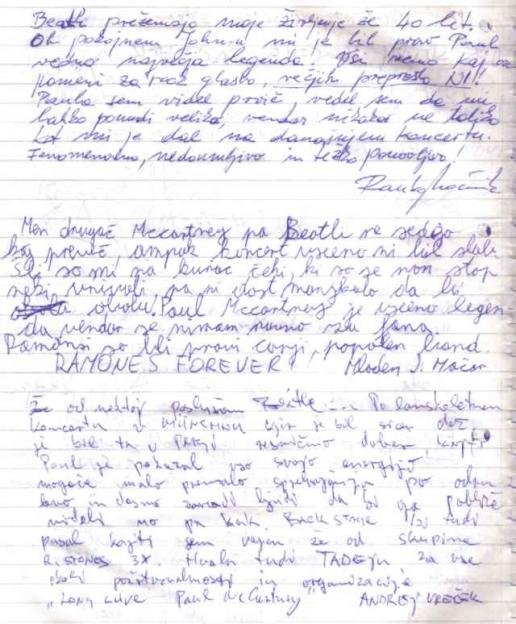 Beatli prežemajo moje življenje že 40 let.
Ob pokojnem Johnu mi je bil prav Paul
vedno največja legenda. Vsi vemo kaj on
pomeni za rock glasbo, večjih preprosto NI!
Paula sem videl prvič vedel sem da mi
lahko ponudi veliko, vendar nikakor ne toliko
kot mi je dal na današnjem koncertu.
Fenomenalno, nedoumljivo in težko ponovljivo!
Men drugač Mccartney pa Beatli ne sedejo
kej preveč, ampak koncert vseeno ni bil slab.
so mi na kurac Čehi, ki so se non stop
vmes pa ni dost manjkalo da bi
Paul Mccartney je vseeno legen
da vendar se nimam ravno za fana.
Ramonsi so bli pravi carji, popoln band.
RAMONES FOREVER! Mladen J.
Že od nekdaj poslušam Beatle ... Po lanskoletnem
koncertu v MÜNCHNU kjer je bil sicer dež
je bil ta v PRAGI resnično dober, kajti
Paul je pokazal vso svojo energijo
mogoče malo premalo po odru
levo in desno zaradi ljudi da bi ga pobliže
videli no pa kaj. BACK STAGE tudi
pasal kajti sem vajen že od skupine
R. STONES 3X. Hvala tudi TADEJU za vse
in organizacijo
"Long Live Paul McCartney" ANDREJ